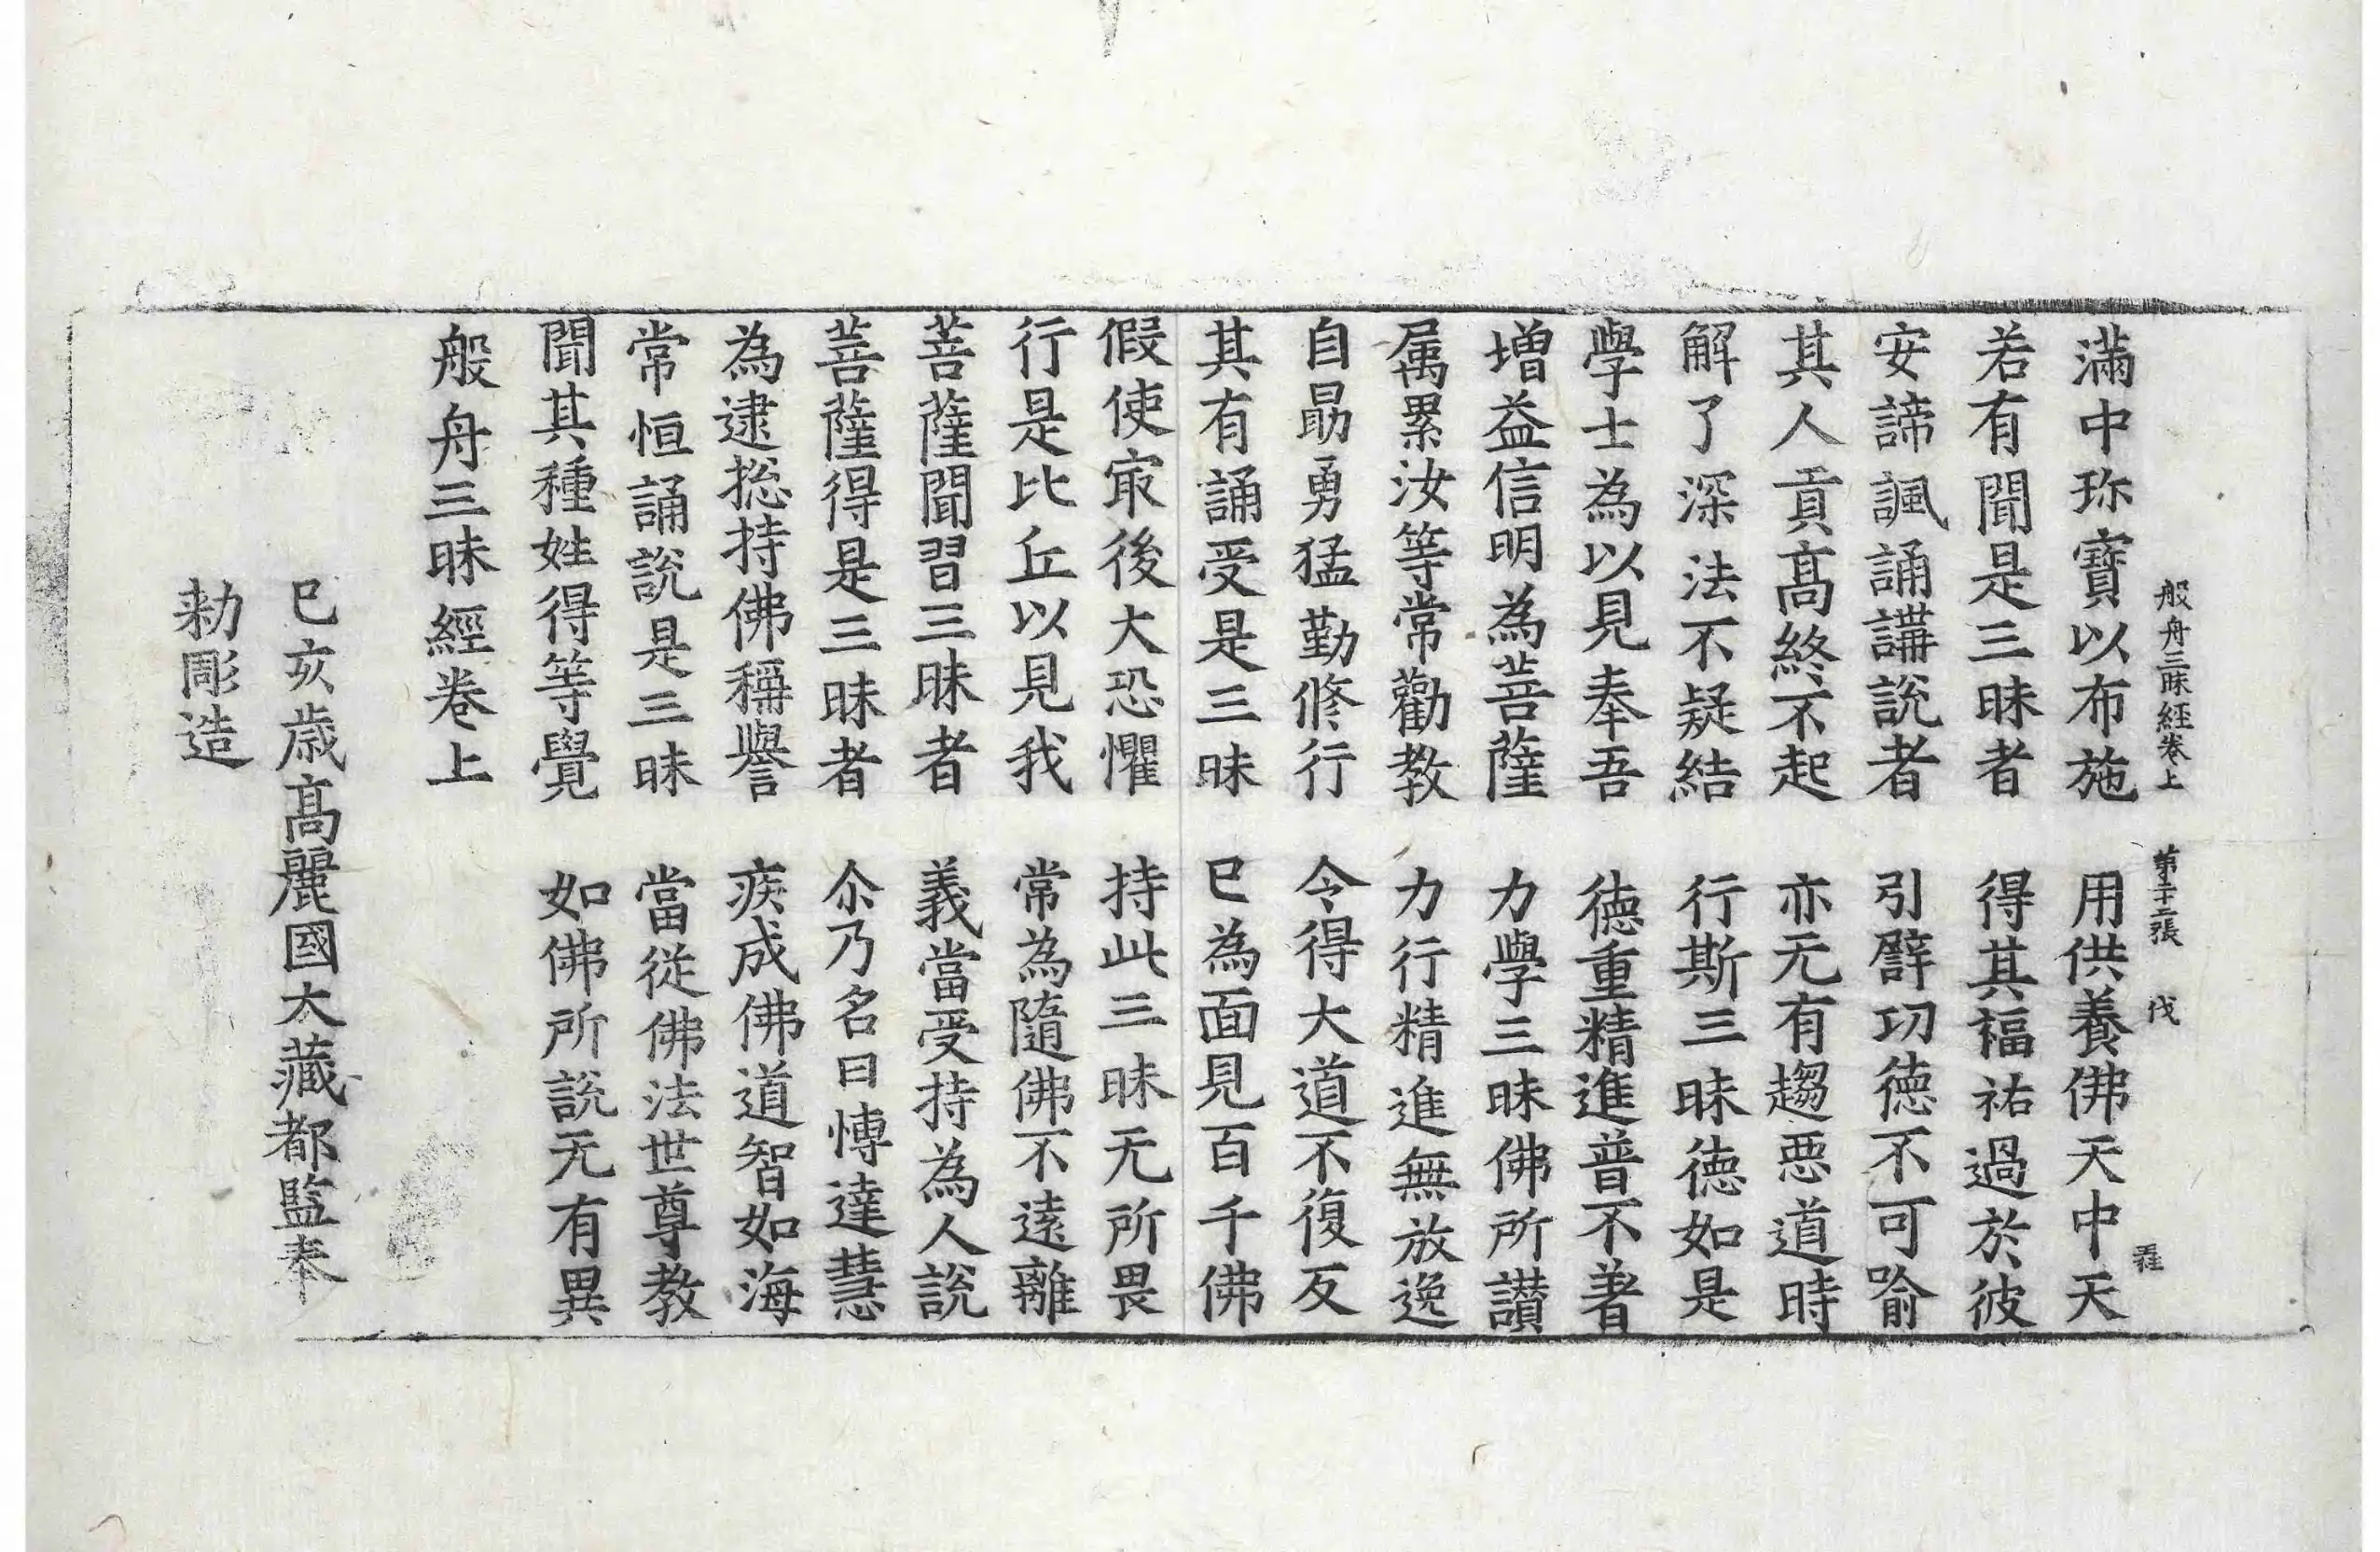 般舟三昧經卷上 第二十二張 伐
滿中珎寶以布施 用供養佛天中天
若有聞是三昧者 得其福祐過於彼
安諦諷誦講說者 引譬功德不可喻
其人貢高終不起 亦无有趨惡道時
解了深法不疑結 行斯三昧德如是
學士為以見奉吾 德重精進普不著
增益信明為菩薩 力學三昧佛所讃
属累汝等常勸教 力行精進無放逸
自勗勇猛勤修行 令得大道不復反
其有誦受是三昧 已為面見百千佛
假使㝡後大恐懼 持此三昧无所畏
行是比丘以見我 常為隨佛不遠離
菩薩聞習三昧者 義當受持為人說
菩薩得是三昧者 尒乃名曰愽達慧
為逮捴持佛稱譽 疾成佛道智如海
常恒誦說是三昧 當從佛法世尊教
聞其種姓得等覺 如佛所說无有異
般舟三昧經卷上
已亥歲高麗國大藏都監奉
勑彫造